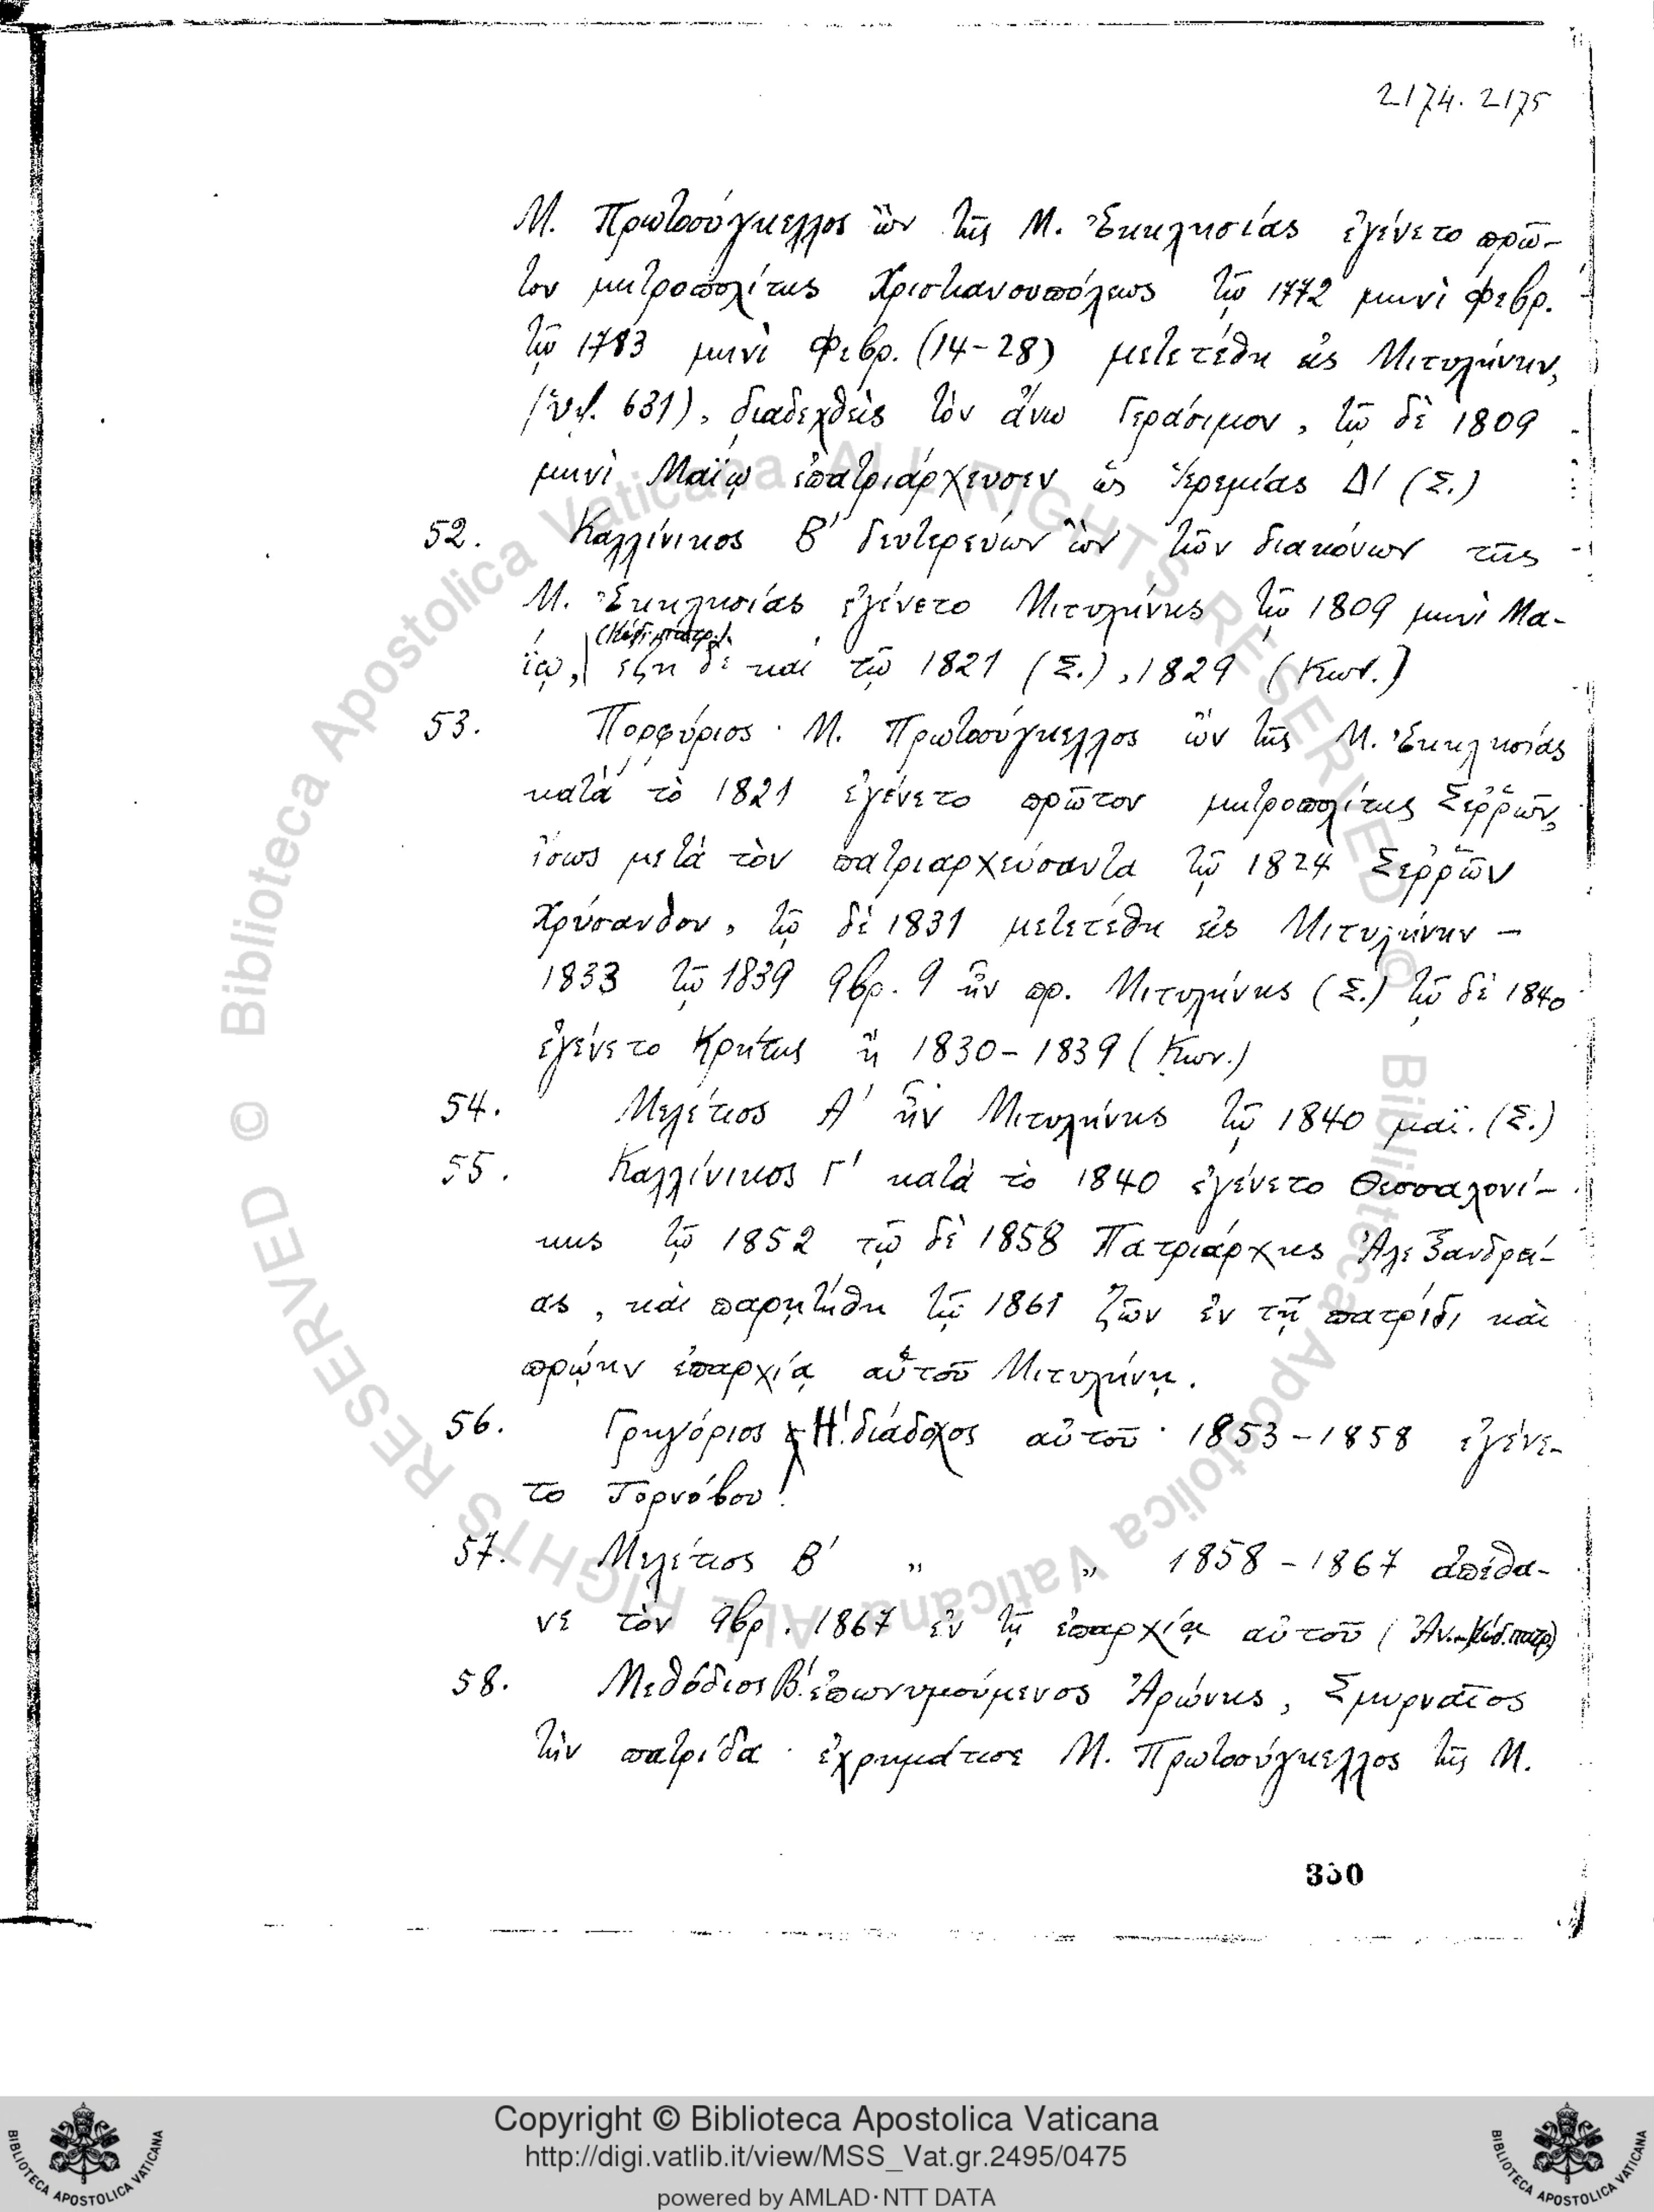 2174. 2175
Μ. Πρωτοσύγκελλος ὢν τῆς Μ. Ἐκκλησίας ἐγένετο πρῶ-
τον μητροπολίτης Χριστιανουπόλεως τῷ 1772 μηνὶ Φεβρ.
τῷ 1783 μηνὶ Φεβρ. (14-28) μετετέθη εἰς Μιτυλήνην,
631), διαδεχθεὶς τὸν ἄνω Γεράσιμον, τῷ δὲ 1809
μηνὶ Μαΐῳ ἐπατριάρχευσεν ὡς Ἱερεμίας Δ' (Σ.)
52. Καλλίνικος Β' δευτερεύων ὢν τῶν διακόνων τῆς
Μ. Ἐκκλησίας ἐγένετο Μιτυλήνης τῷ 1809 μηνὶ Μα-
(Κώδ. πατρ.)
ΐῳ, ἔζη δὲ καὶ τῷ 1821 (Σ.), 1829 (Κων.)
53. Πορφύριος · Μ. Πρωτοσύγκελλος ὢν τῆς Μ. Ἐκκλησίας
κατὰ τὸ 1821 ἐγένετο πρῶτον μητροπολίτης Σερρῶν,
ἴσως μετὰ τὸν πατριαρχεύσαντα τῷ 1824 Σερρῶν
Χρύσανθον, τῷ δὲ 1831 μετετέθη εἰς Μιτυλήνην -
1833 τῷ 1839 9βρ. 9 ἦν πρ. Μιτυλήνης (Σ.) τῷ δὲ 1840
ἐγένετο Κρήτης ἢ 1830-1839 (Κων.)
54. Μελέτιος Α' ἦν Μιτυλήνης τῷ 1840 μαΐ. (Σ.)
55. Καλλίνικος Γ' κατὰ τὸ 1840 ἐγένετο Θεσσαλονί-
κης τῷ 1852 τῷ δὲ 1858 Πατριάρχης Ἀλεξανδρεί-
ας, καὶ παρῃτήθη τῷ 1861 ζῶν ἐν τῇ πατρίδι καὶ
πρῴην ἐπαρχίᾳ αὑτοῦ Μιτυλήνῃ.
56. Γρηγόριος Η'. διάδοχος αὐτοῦ · 1853-1858 ἐγένε-
το Τορνόβου!
57. Μελέτιος Β' „ „ 1858-1867 ἀπέθα-
νε τὸν 9βρ. 1867 ἐν τῇ ἐπαρχίᾳ αὐτοῦ (Ἀν. Κώδ. πατρ)
58. Μεθόδιος Β'. ἐπωνυμούμενος Ἀρώνης, Σμυρναῖος
τὴν πατρίδα · ἐχρημάτισε Μ. Πρωτοσύγκελλος τῆς Μ.
330
© Biblioteca Apostolica Vaticana ALL RIGHTS RESERVED
© Biblioteca Apostolica Vaticana ALL RIGHTS RESERVED
Copyright © Biblioteca Apostolica Vaticana
http://digi.vatlib.it/view/MSS_Vat.gr.2495/0475
powered by AMLAD·NTT DATA
BIBLIOTECA APOSTOLICA VATICANA
BIBLIOTECA APOSTOLICA VATICANA